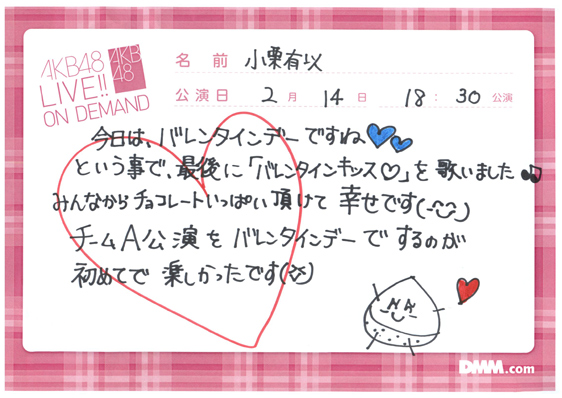 AKB48
LIVE!!
ON DEMAND
AKB
48
名 前 小栗有以
公演日 2月 14日 18:30公演
今日は、バレンタインデーですね💙💙
という事で、最後に「バレンタインキッス♡」を歌いました♫
みんなからチョコレートいっぱい頂けて 幸せです(-‿-)
チームA公演をバレンタインデーでするのが
初めてで楽しかったです
DMM.com